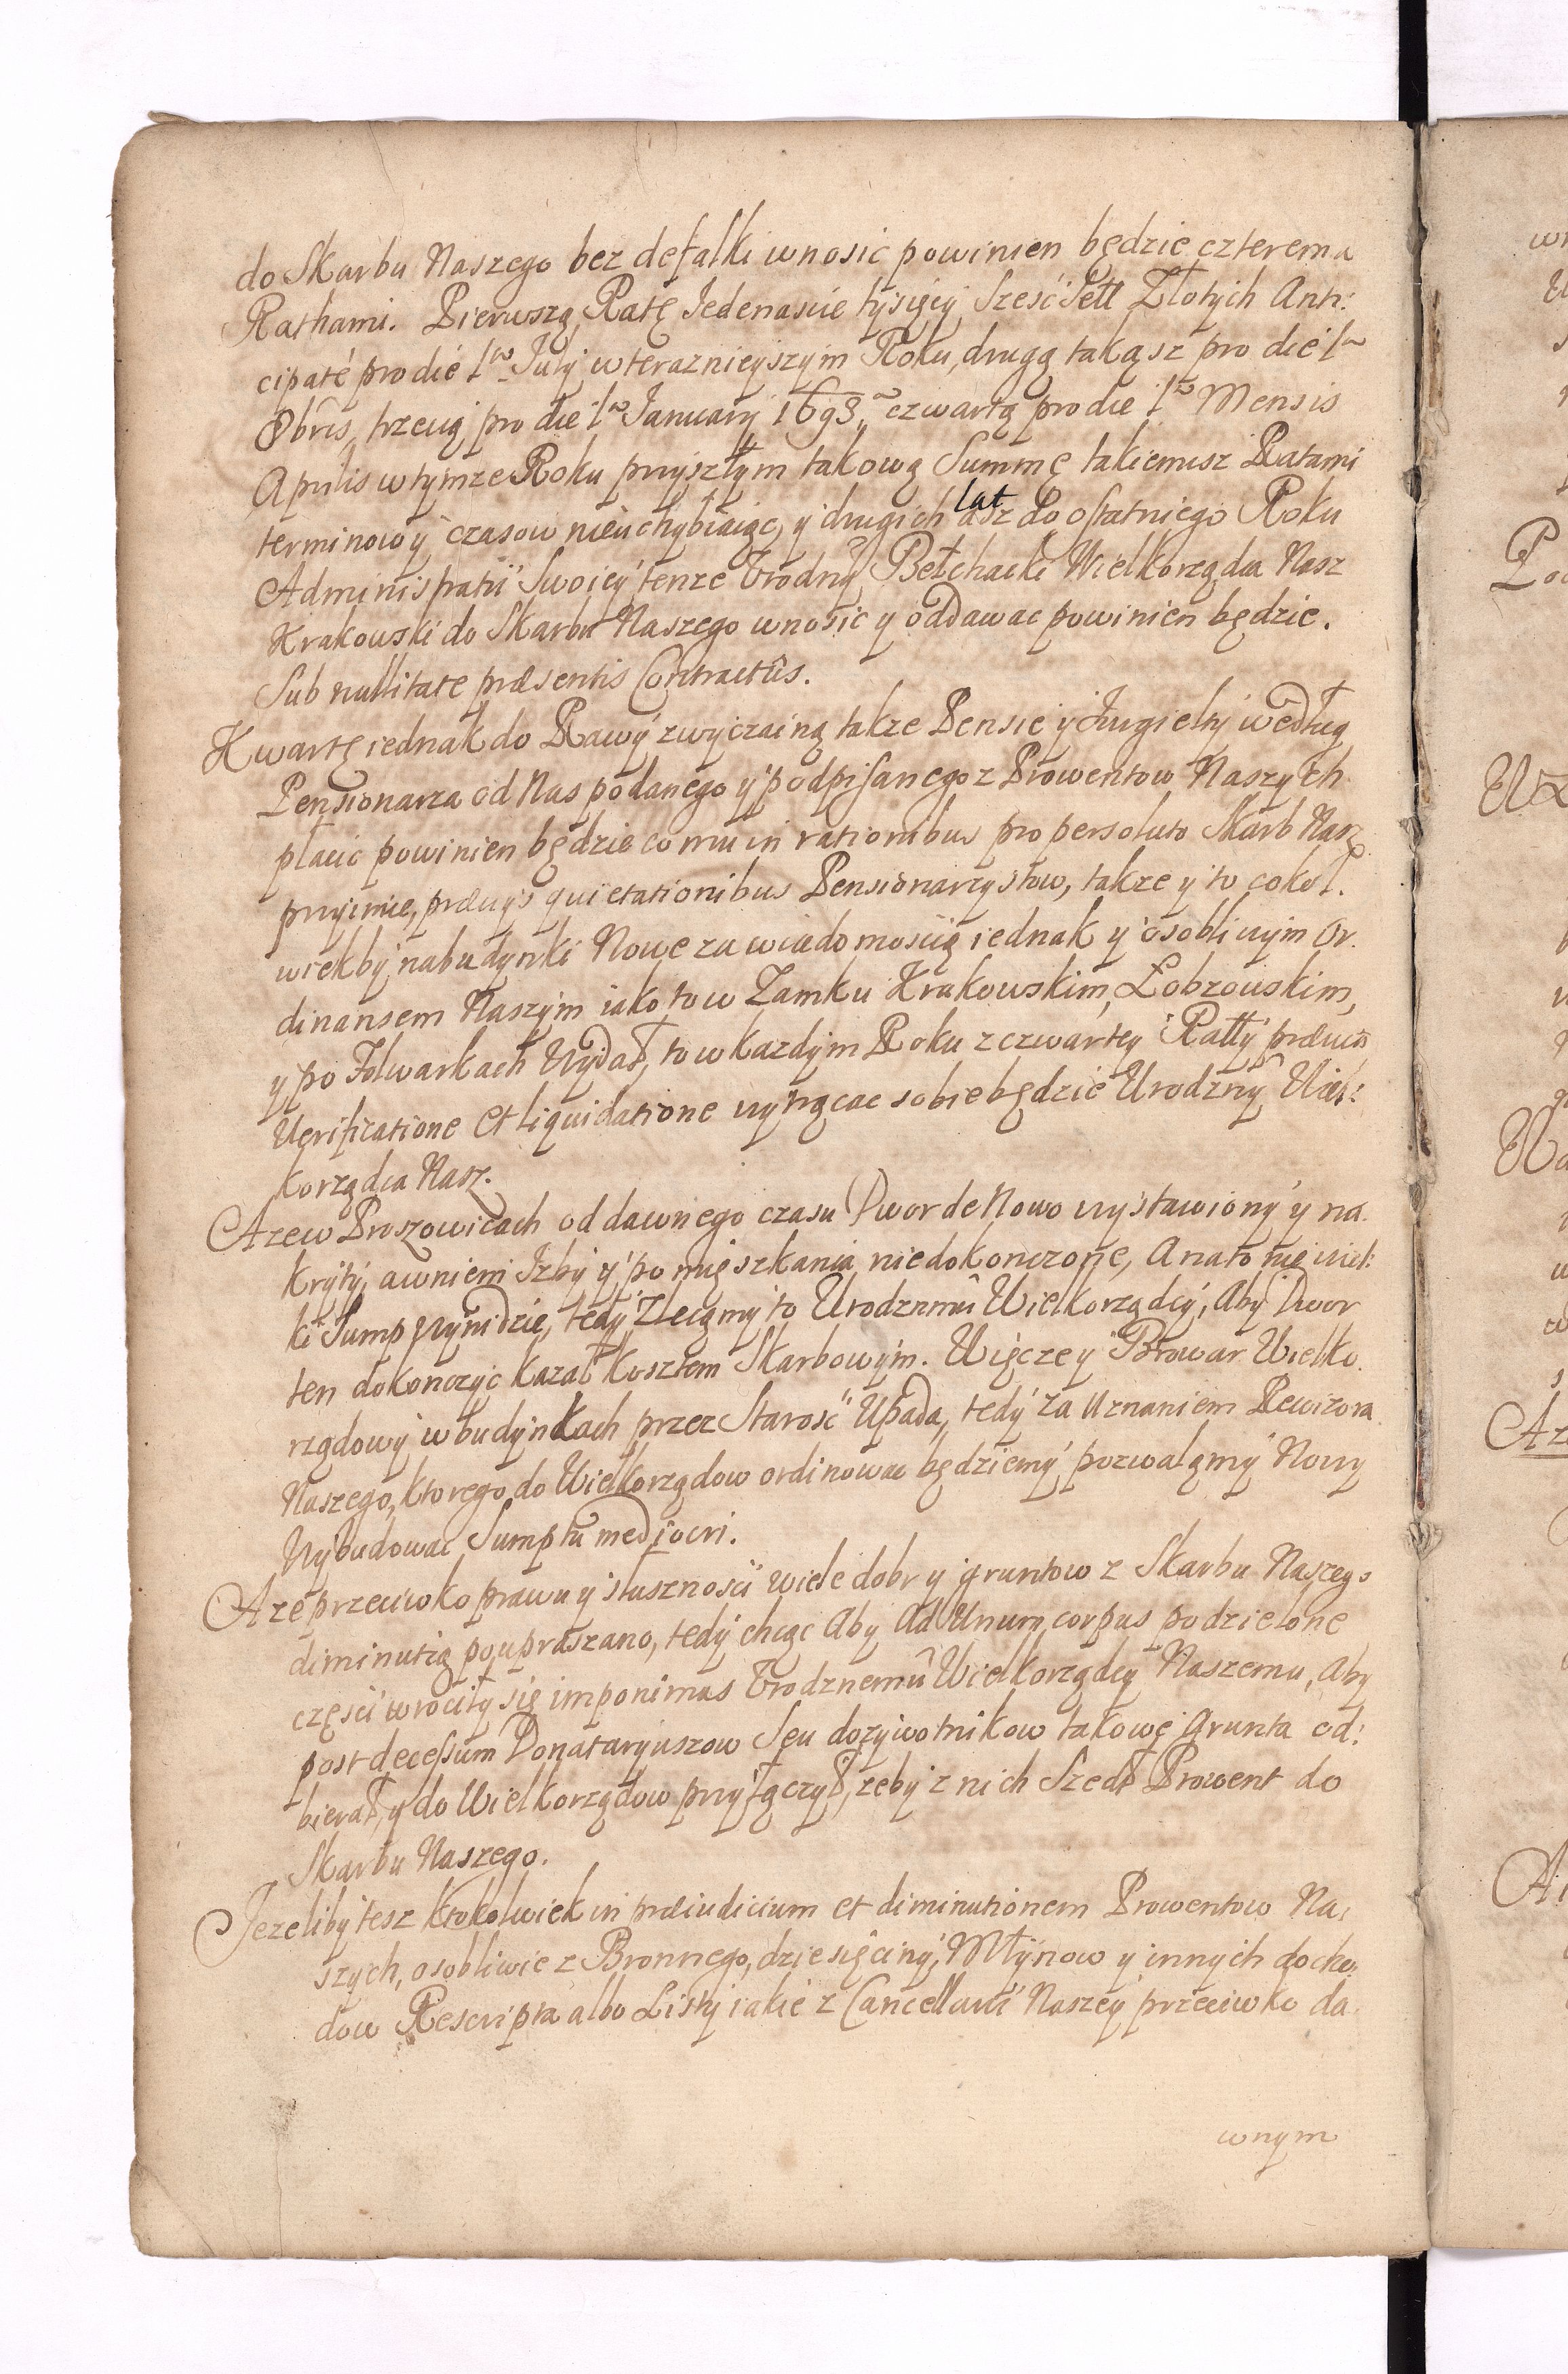 do Skarbu Naszego bez defalki wnosic powinien będzie czterema
Rathami. Pierwszą Ratę Jedenascie tysięcy Sześć Sett Złotych Anti:
cipaté pro die 1ma July w teraznieyszym Roku, drugą takąsz pro die 1ma
8bris, trzecią pro die 1ma January 1693. czwartą pro die 1ma Mensis
Aprilis w tymze Roku przyszłym takową Summę takiemisz Ratami
terminow y czasow nieuchybiaiąc, y drugich lat asz do ostatniego Roku
Administratii Swoiey tenze Urodny Bełchacki Wielkorządca Nasz
Krakowski do Skarbu Naszego wnosic y oddawac powinien będzie.
Sub nullitate præsentis Contractûs.
Kwartę iednak do Rawy zwyczainą takze Pensie y Jurgielty według
Pensionarza od Nas podanego y podpisanego z Prowentow Naszych
płacic powinien będzie co mu in rationibus pro persoluto Skarb Nasz
przyimie, prævys quietationibus Pensionarzystow, takze y to cokol.
wiekby na budynki Nowe za wiadomoscią iednak y osobliwym Or.
dinansem Naszym iako to w Zamku Krakowskim, Łobzowskim,
y po Folwarkach Wydał, to w kazdym Roku z czwartey Ratty prævia
Verificatione et liquidatione wytrącac sobie będzie Urodzny Wiel:
korządca Nasz.
A ze w Proszowicach od dawnego czasu Dwor de Nowo wystawiony y na.
kryty, a w niem Izby y pomieszkania niedokonczone, A na to nie wiel:
ki Sumpt wynidzie, tedy Zlecamy to Urodznmû Wielkorządcy, Aby Dwor
ten dokonczyc kazał kosztem Skarbowym. Więc ze y Browar Wielko.
rządowy w budynkach przez Starosc Upada, tedy za Uznaniem Rewizora
Naszego, ktorego do Wielkorządow ordinowac będziemy pozwalamy Nowy
Wybudowac Sumptu mediocri.
A ze przeciwko prawu y słusznosci wiele dobr y gruntow z Skarbu Naszego
diminutią poupraszano, tedy chcąc Aby Ad Unum corpus podzielone
częsci wrociły się imponimus Urodznemû Wielkorządcy Naszemu, Aby
post decessum Donataryuszow Seu dozywotnikow takowe grunta od:
bierał, y do Wielkorządow przyłączył, zeby z nich Szedł Prowent do
Skarbu Naszego.
Jezeliby tesz ktokolwiek in præiudicium et diminutionem Prowentow Na:
szych, osobliwie z Bronnego, dziesięciny, Młynow y innych docho:
dow Rescripta albo Listy iakie z Cancellarii Naszey przeciwko da.
wnym